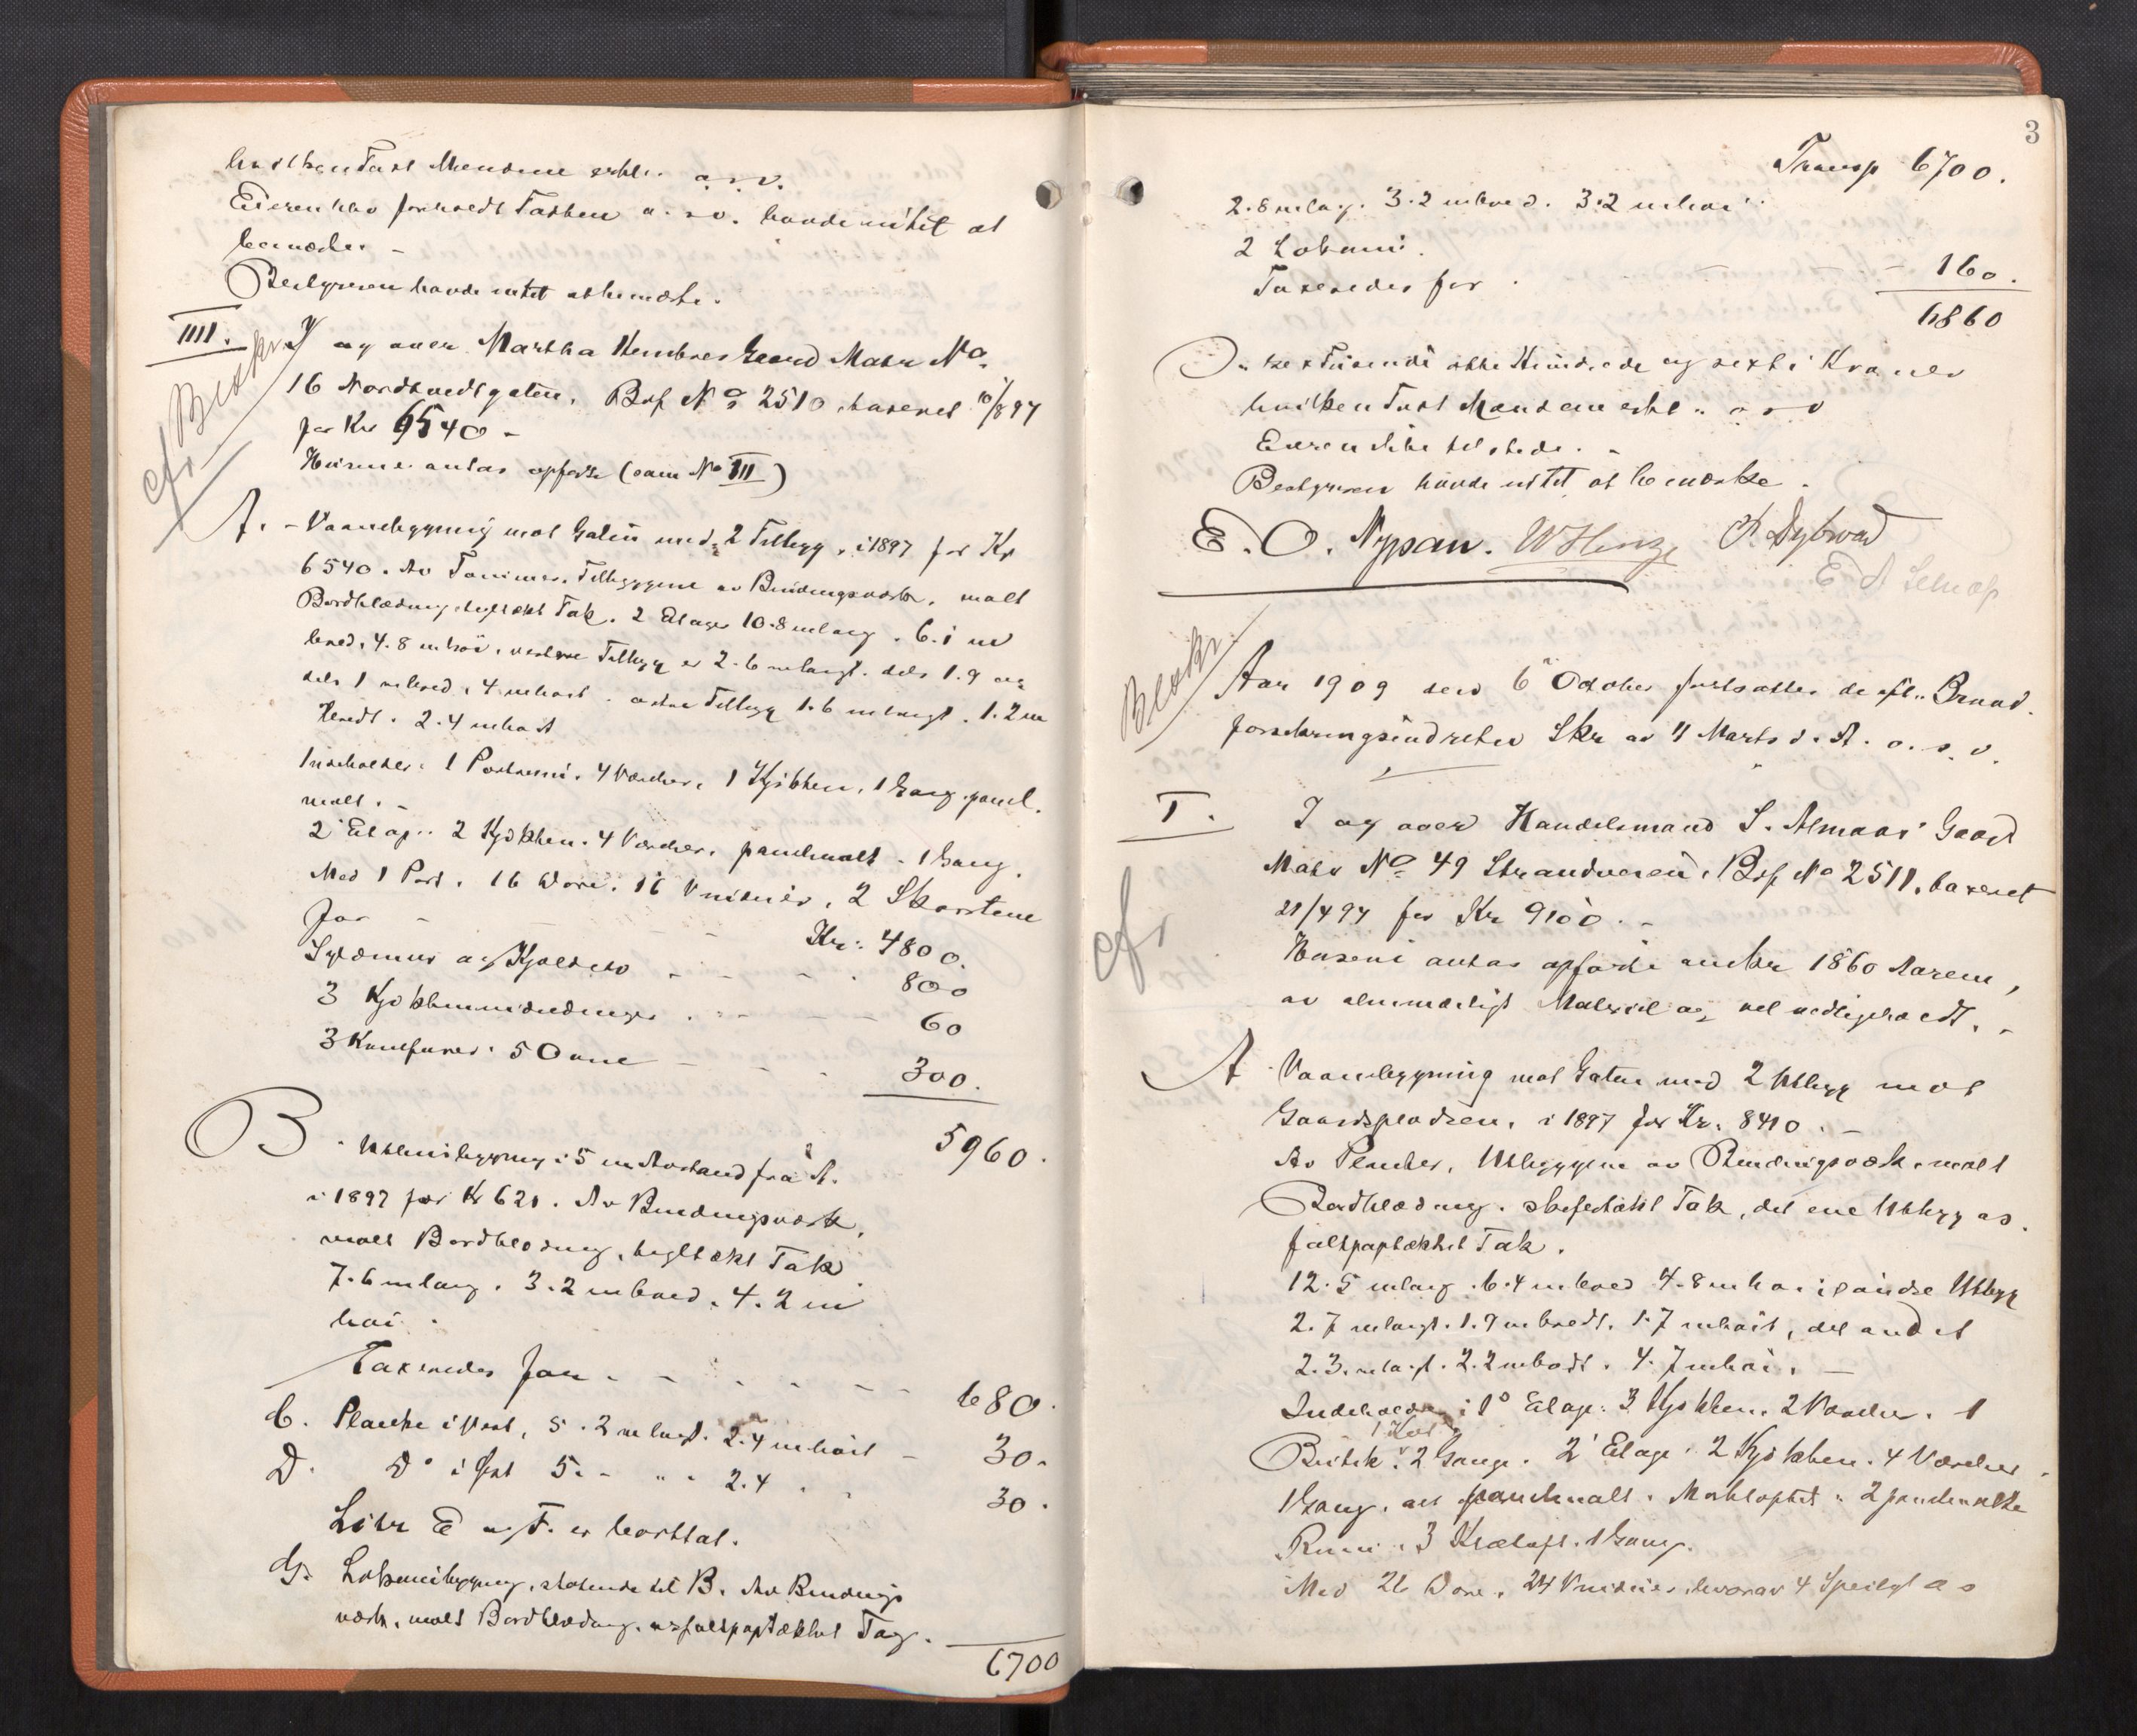 hvilken Taxt Mændene erkl. o.s.v.
Eieren blev forholdt Taxten o.s.v. havde intet at
bemærke. -
Bestyreren havde intet at bemærke.
IIII. I og over Martha Hembres Gaard Matr No
16 Nordtvedtgaten, Brf No 2510, taxeret 10/8 97
for Kr 6540 -
Husene antas opførte (som No III)
Bestkr.
cfr
A. - Vaanebygning mot Gaten med 2 Tilbygg, i 1897 for Kr
6540. Av Tømmer. Tilbyggene av Bindingsværk, malt
Bordklædning, tegltækt Tak. 2 Etager 10.8 m lang. 6.1 m
bred, 4.8 m høi, vestre Tilbygg er 2.6 m langt. dels 1.9 og
dels 1 m bred, 4 m høit. østre Tilbygg 1.6 m langt. 1.2 m
bredt. 2.4 m høit
Indeholder: 1 Portrum. 4 Værelser, 1 Kjøkken, 1 Gang, panel.
malt. -
2' Etag.. 2 Kjøkken. 4 Værelser, panelmalt - 1 Gang.
Med 1 Port. 16 Døre. 16 Vinduer, 2 Skorstene
for - - - Kr. 4800.
Grundmur og Kjelder - - - - 800
3 Kjøkkenindredninger - - - 60
3 Komfurer. 5 Ovne - - - 300.
5960.
B. Uthusbygning i 5 m Avstand fra A.
i 1897 for Kr 620. Av Bindingsværk,
malt Bordklædning, tegltækt Tak
7.6 m lang. 3.2 m bred, 4.2 m
høi.
Taxeredes for - - - - - 680.
C. Planke i Vest, 5.2 m langt. 2.4 m høit - 30.
D. Do i Øst 5. - " " 2.4 " 30.
Litr E og F. er borttat.
G. Lokumbygning, støtende til B. Av Bindings
værk, malt Bordklædning, asfaltpaptækket Tag.
6700
3
Transp 6700.
2.8 m lang. 3.2 m bred. 3.2 m høi.
2 Lokum.
Taxeredes for . - - - 160.
6860
Er sex Tusinde otte Hundrede og sexti Kroner
hvilken Taxt Mændene erkl. o s v
Eieren ikke tilstede. -
Bestyreren havde intet at bemærke.
E. O. Nypan. W Hinze O. Dybwad
E A
Bestkr.
Aar 1909 den 6te October fortsattes de efter Brand.
forsikringsindretn Skr av 11 Marts d. A. o. s. v.
I. I og over Handelsmand S. Almaas' Gaard
Matr No 49 Strandveien, Brf No 2511, taxeret
21/4 97 for Kr 9100. -
Husene antas opførte omkr 1860 Aarene,
av almindeligt Material og vel vedligeholdt. -
cfr
A Vaanebygning mot Gaten med 2 Utbygg mot
Gaardspladsen, i 1897 for Kr. 8410. -
Av Planker, Utbyggene av Bindingsværk, malt
Bordklædning. skifertækt Tak, det ene Utbygg as.
faltpaptækket Tak.
12.5 m lang. 6.4 m bred 4.8 m høi, søndre Utbygg
2.7 m langt. 1.9 m bredt. 1.7 m høit, det andet
2.3 m langt. 2.2 m bredt. 4.7 m høi. -
Indeholder i 1o Etage: 3 Kjøkken. 2 Værelser. 1
Butik. 2 Gange. 2' Etage: 2 Kjøkken. 4 Værelser,
1 Gang, alt panelmalt. Mørkloftet: 2 panelmalte
Rum. 3 Klæloft. 1 Gang.
Med 26 Døre, 24 Vinduer, hvorav 4 Speilglas